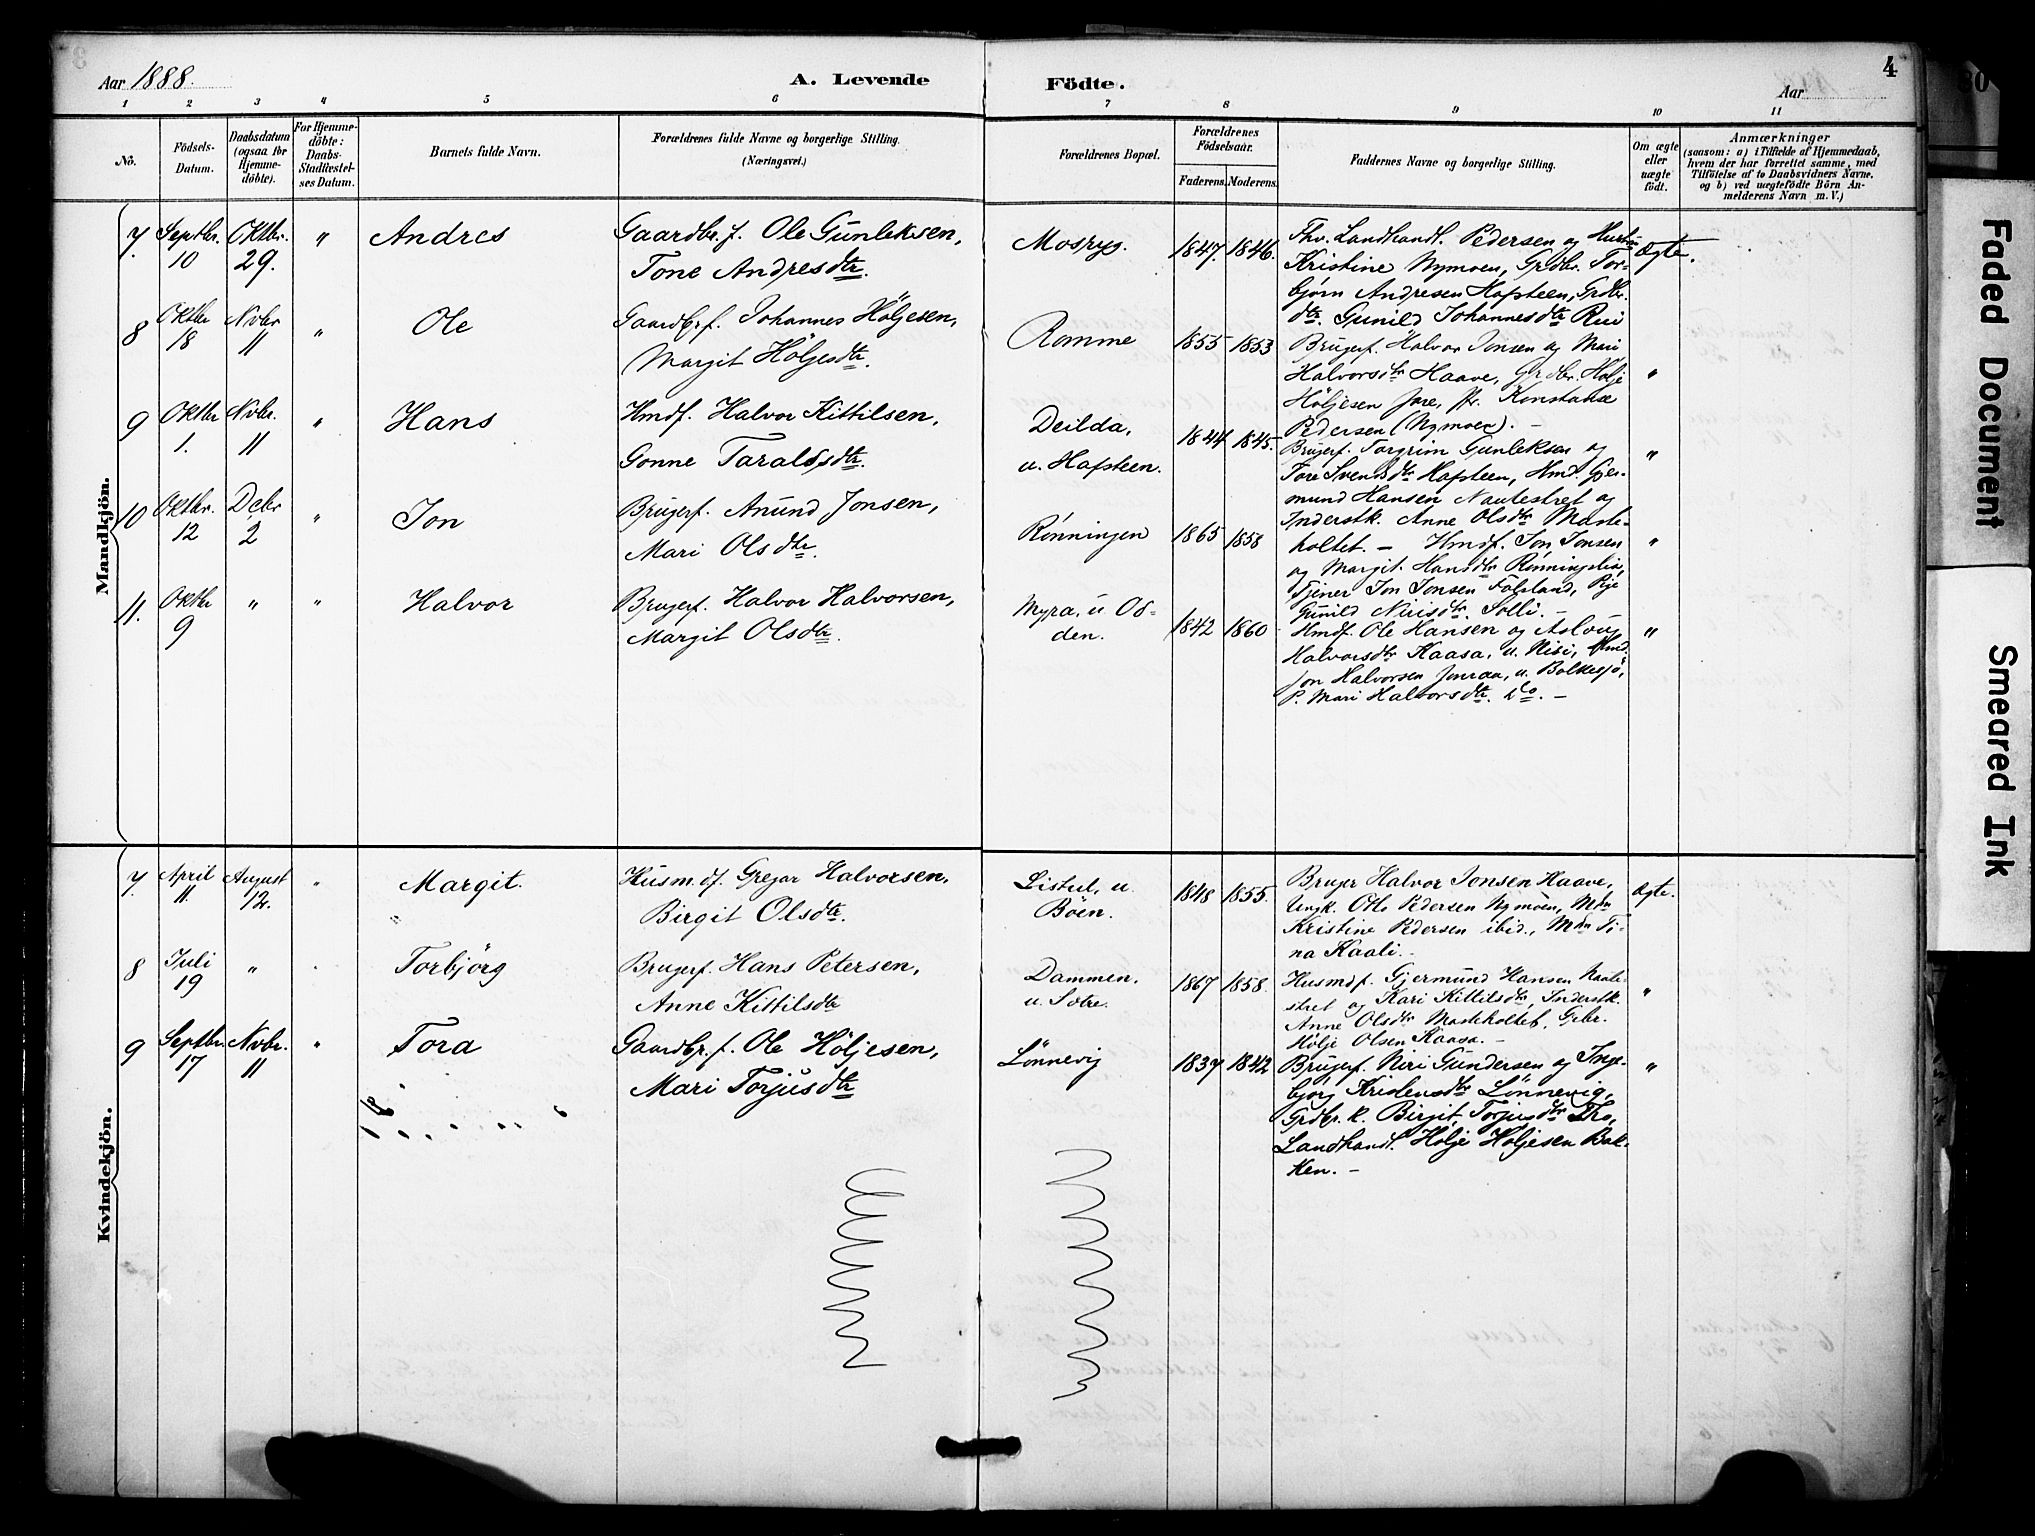 Aar 1888.
A. Levende Födte.
4
Aar
1 2 3 4 5 6 7 8 9 10 11
No.
Födsels-Datum.
Daabsdatum (ogsaa for Hjemme-döbte).
For Hjemme-döbte: Daabs-Stadfæstel-ses Datum.
Barnets fulde Navn.
Forældrenes fulde Navne og borgerlige Stilling.
(Næringsvei.)
Forældrenes Bopæl.
Forældrenes Födselsaar.
Faderens. Moderens.
Faddernes Navne og borgerlige Stilling.
Om ægte eller uægte födt.
Anmærkninger
(saasom: a) i Tilfælde af Hjemmedaab,
hvem der har forrettet samme, med
Tilföielse af to Daabsvidners Navne,
og b) ved uægtefödte Börn An-
melderens Navn m. V.)
Mandkjön.
7. Septbr. 10 Oktbr. 29. " Andres
Gaardbr.f. Ole Gunleksen,
Tone Andresdtr.
Mosryg. 1847. 1846.
Thv. Landhandl. Pedersen og Hustru
Kristine Nymoen, Grdbr. Tor-
bjørn Andresen Hafsteen, Grdbr.
dtr. Gunild Johannesdtr Rui
Ægte.
8 Oktbr 18 Nvbr 11 " Ole
Gaardbrf. Johannes Höljesen,
Margit Höljesdtr.
Romme 1855 1853
Brugerf. Halvor Jonsen og Mari
Halvorsdtr Haave, Grdbr. Hölje
Höljesen Jore, Pr. Konstanse
Pedersen (Nymoen). –
"
9 Oktbr 1. Nvbr. 11 " Hans
Hmdf. Halvor Kittilsen,
Gonne Taraldsdtr.
Deilda,
u. Hafsteen.
1844 1845.
Brugerf. Torgrim Gunleksen og
Tore Svendsdtr Hafsteen, Hmd. Gjer-
mund Hansen Nautestret og
Inderstk. Anne Olsdtr Maste-
holtet. –
"
10 Oktbr. 12 Debr 2 " Jon
Brugerf. Anund Jonsen,
Mari Olsdtr.
Rønningen 1865 1858
Hmdf. Jon Jonsen
og Margit Hansdtr Rønningslia,
Tjener Jon Jonsen Folsland, Pige
Gunild Nirisdtr. Solli. –
"
11. Oktbr 9 " " Halvor
Brugerf. Halvor Halvorsen,
Margit Olsdtr.
Myra, u Od-
den.
1842 1860
Hmdf. Ole Hansen og Aslaug
Halvorsdtr Kaasa, u. Nisi, Hmd.
Jon Halvorsen Jonraa, u. Bolkesjö,
P. Mari Halvorsdtr. do. –
"
Kvindekjön.
7. April 11. August 12. " Margit.
Husm.df. Gregar Halvorsen,
Birgit Olsdtr.
Listul, u.
Böen.
1848 1855.
Bruger Halvor Jonsen Haave,
Ungk. Otto Pedersen Nymoen, Mdm
Kristine Pedersen ibid., Mdm Ti-
na Kaali. –
Ægte.
8 Juli 19 " " Torbjörg
Brugerf. Hans Petersen,
Anne Kittilsdtr
Dammen.
u. Sotre.
1867 1858.
Husmdf. Gjermund Hansen Naute-
stret og Kari Kittilsdtr, Inderstk.
Anne Olsdtr Masteholtet, Grbr.
Hölje Olsen Kaasa. –
"
9 Septbr. 17 Nvbr. 11 " Tora
Gaardbr.f. Ole Höljesen,
Mari Torjusdtr
Lönnevig 1837 1842
Brugerf. Niri Gundersen og Inge-
bjørg Kristensdtr Lönnevig,
Grdbr.k. Birgit Torjusdtr Tho,
Landhandl. Hölje Höljesen Bak-
ken. –
"
Faded Document
Smeared Ink